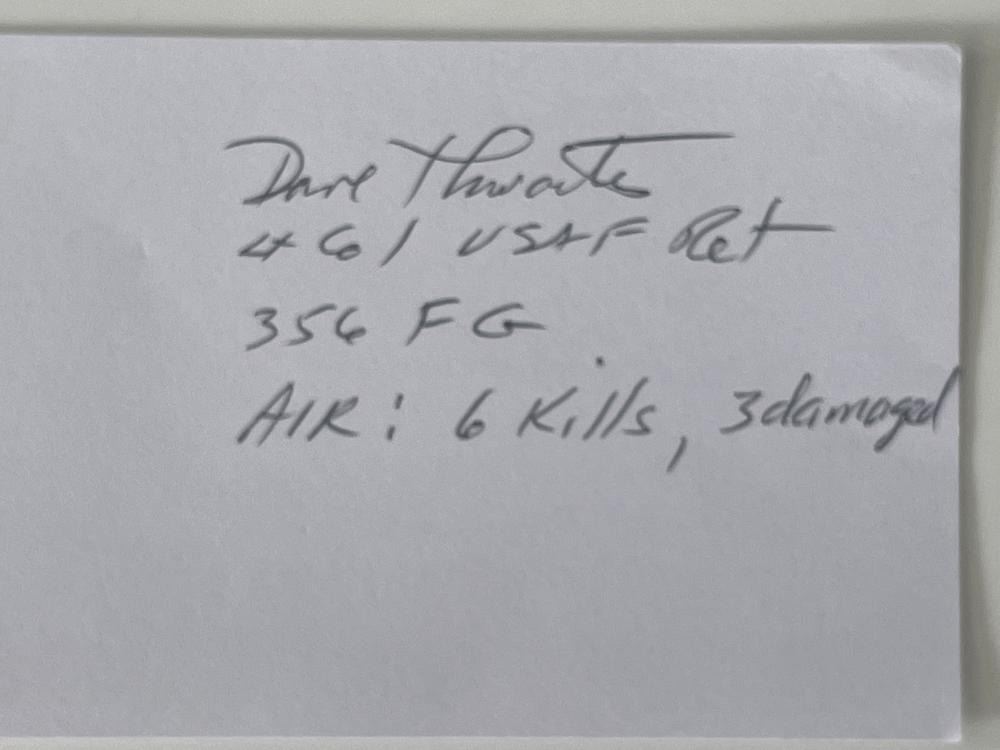 Dave Thwaites
Lt Col USAF Ret
356 FG
AIR: 6 Kills, 3 damaged